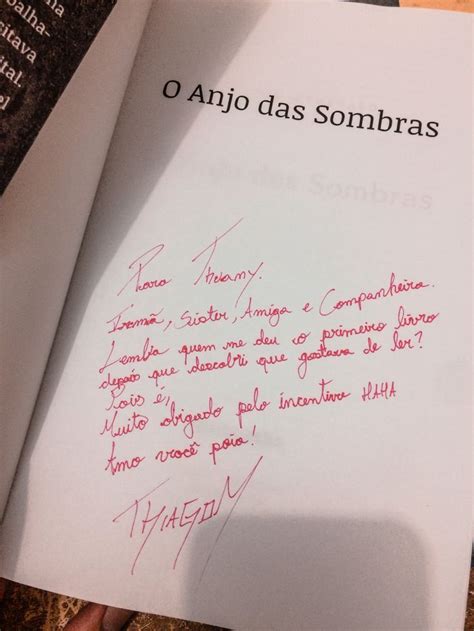 na
balha-
sitava
ital.
el
O Anjo das Sombras
Para Thevany.
Irmã, Sister, Amiga e Companheira.
Lembra quem me deu o primeiro livro
depois que descobri que gostava de ler?
Pois é,
Muito obrigado pelo incentivo HAHA
Amo você poia!
THIAGO M